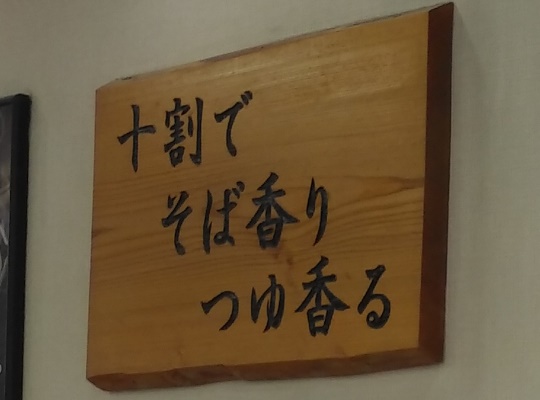 十割で
そば香り
つゆ香る